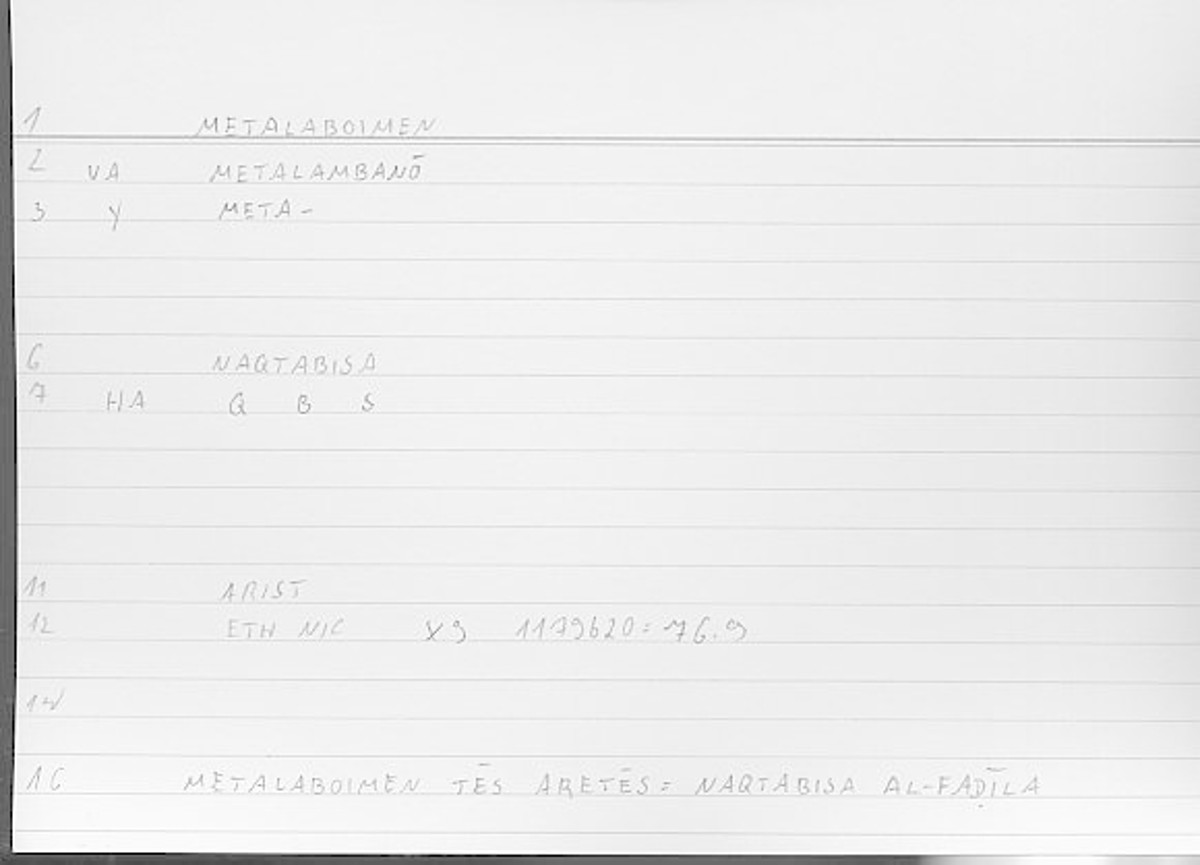 1 METALABOIMEN
2 VA METALAMBANŌ
3 Y META-
6 NAQTABISA
7 HA Q B S
11 ARIST
12 ETH NIC X9 1179b20=76.9
14
16 METALABOIMEN TĒS ARETĒS= NAQTABISA AL-FAḌĪLA